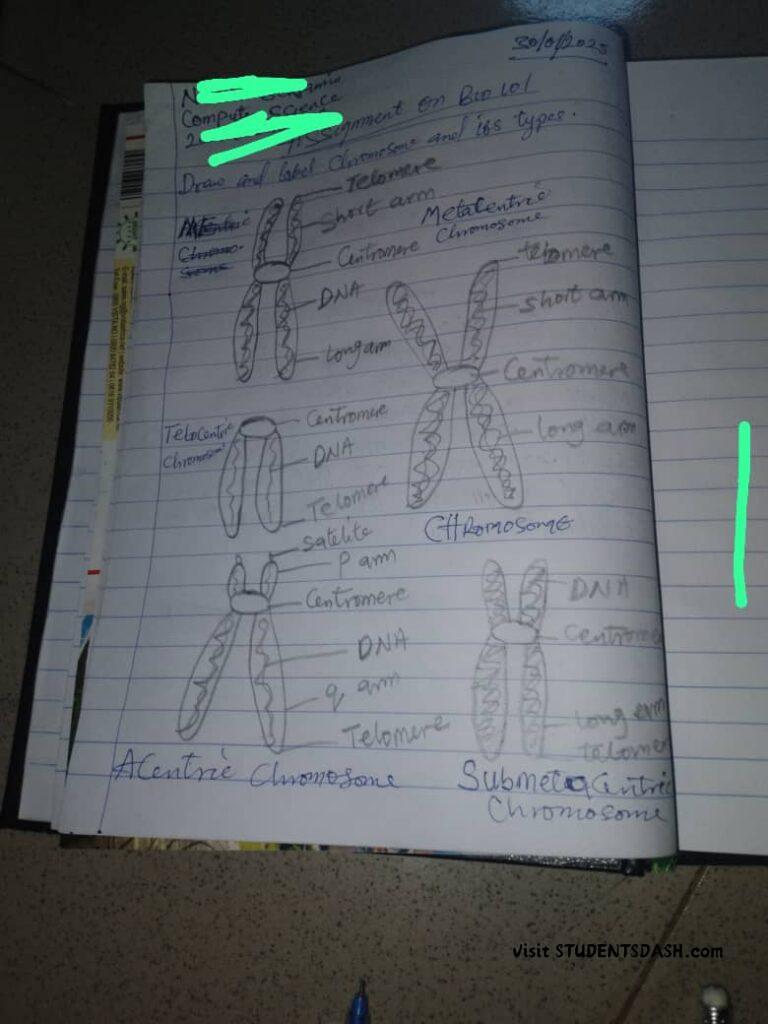 30/01/2025
Computer Science
Assignment on Bio 101
Draw and label Chromosome and its types.
Telomere
Short arm
Centromere
DNA
Long arm
Metacentric
Chromosome
telomere
short arm
Centromere
long arm
CHROMOSOME
Telocentric
Chromosome
Centromere
DNA
Telomere
Satelite
P arm
Centromere
DNA
q arm
Telomere
ACentric Chromosome
DNA
Centromere
long arm
telomer
Submetacentric
Chromosome
Visit STUDENTSDASH.com